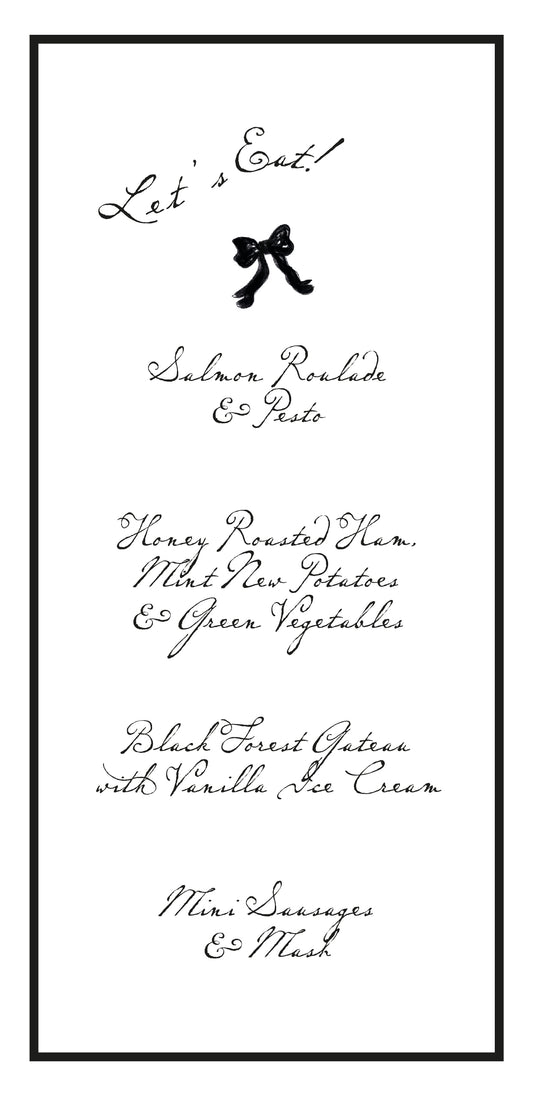 Let's Eat!
Salmon Roulade
& Pesto
Honey Roasted Ham,
Mint New Potatoes
& Green Vegetables
Black Forest Gateau
with Vanilla Ice Cream
Mini Sausages
& Mash